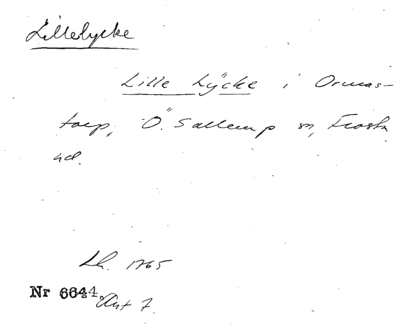 Lillelycke
Lille Lÿcke i Ormas-
torp, Ö. Sallerup sn, Frosta
hd.
Lh. 1765
Nr 6644. Ant 7.